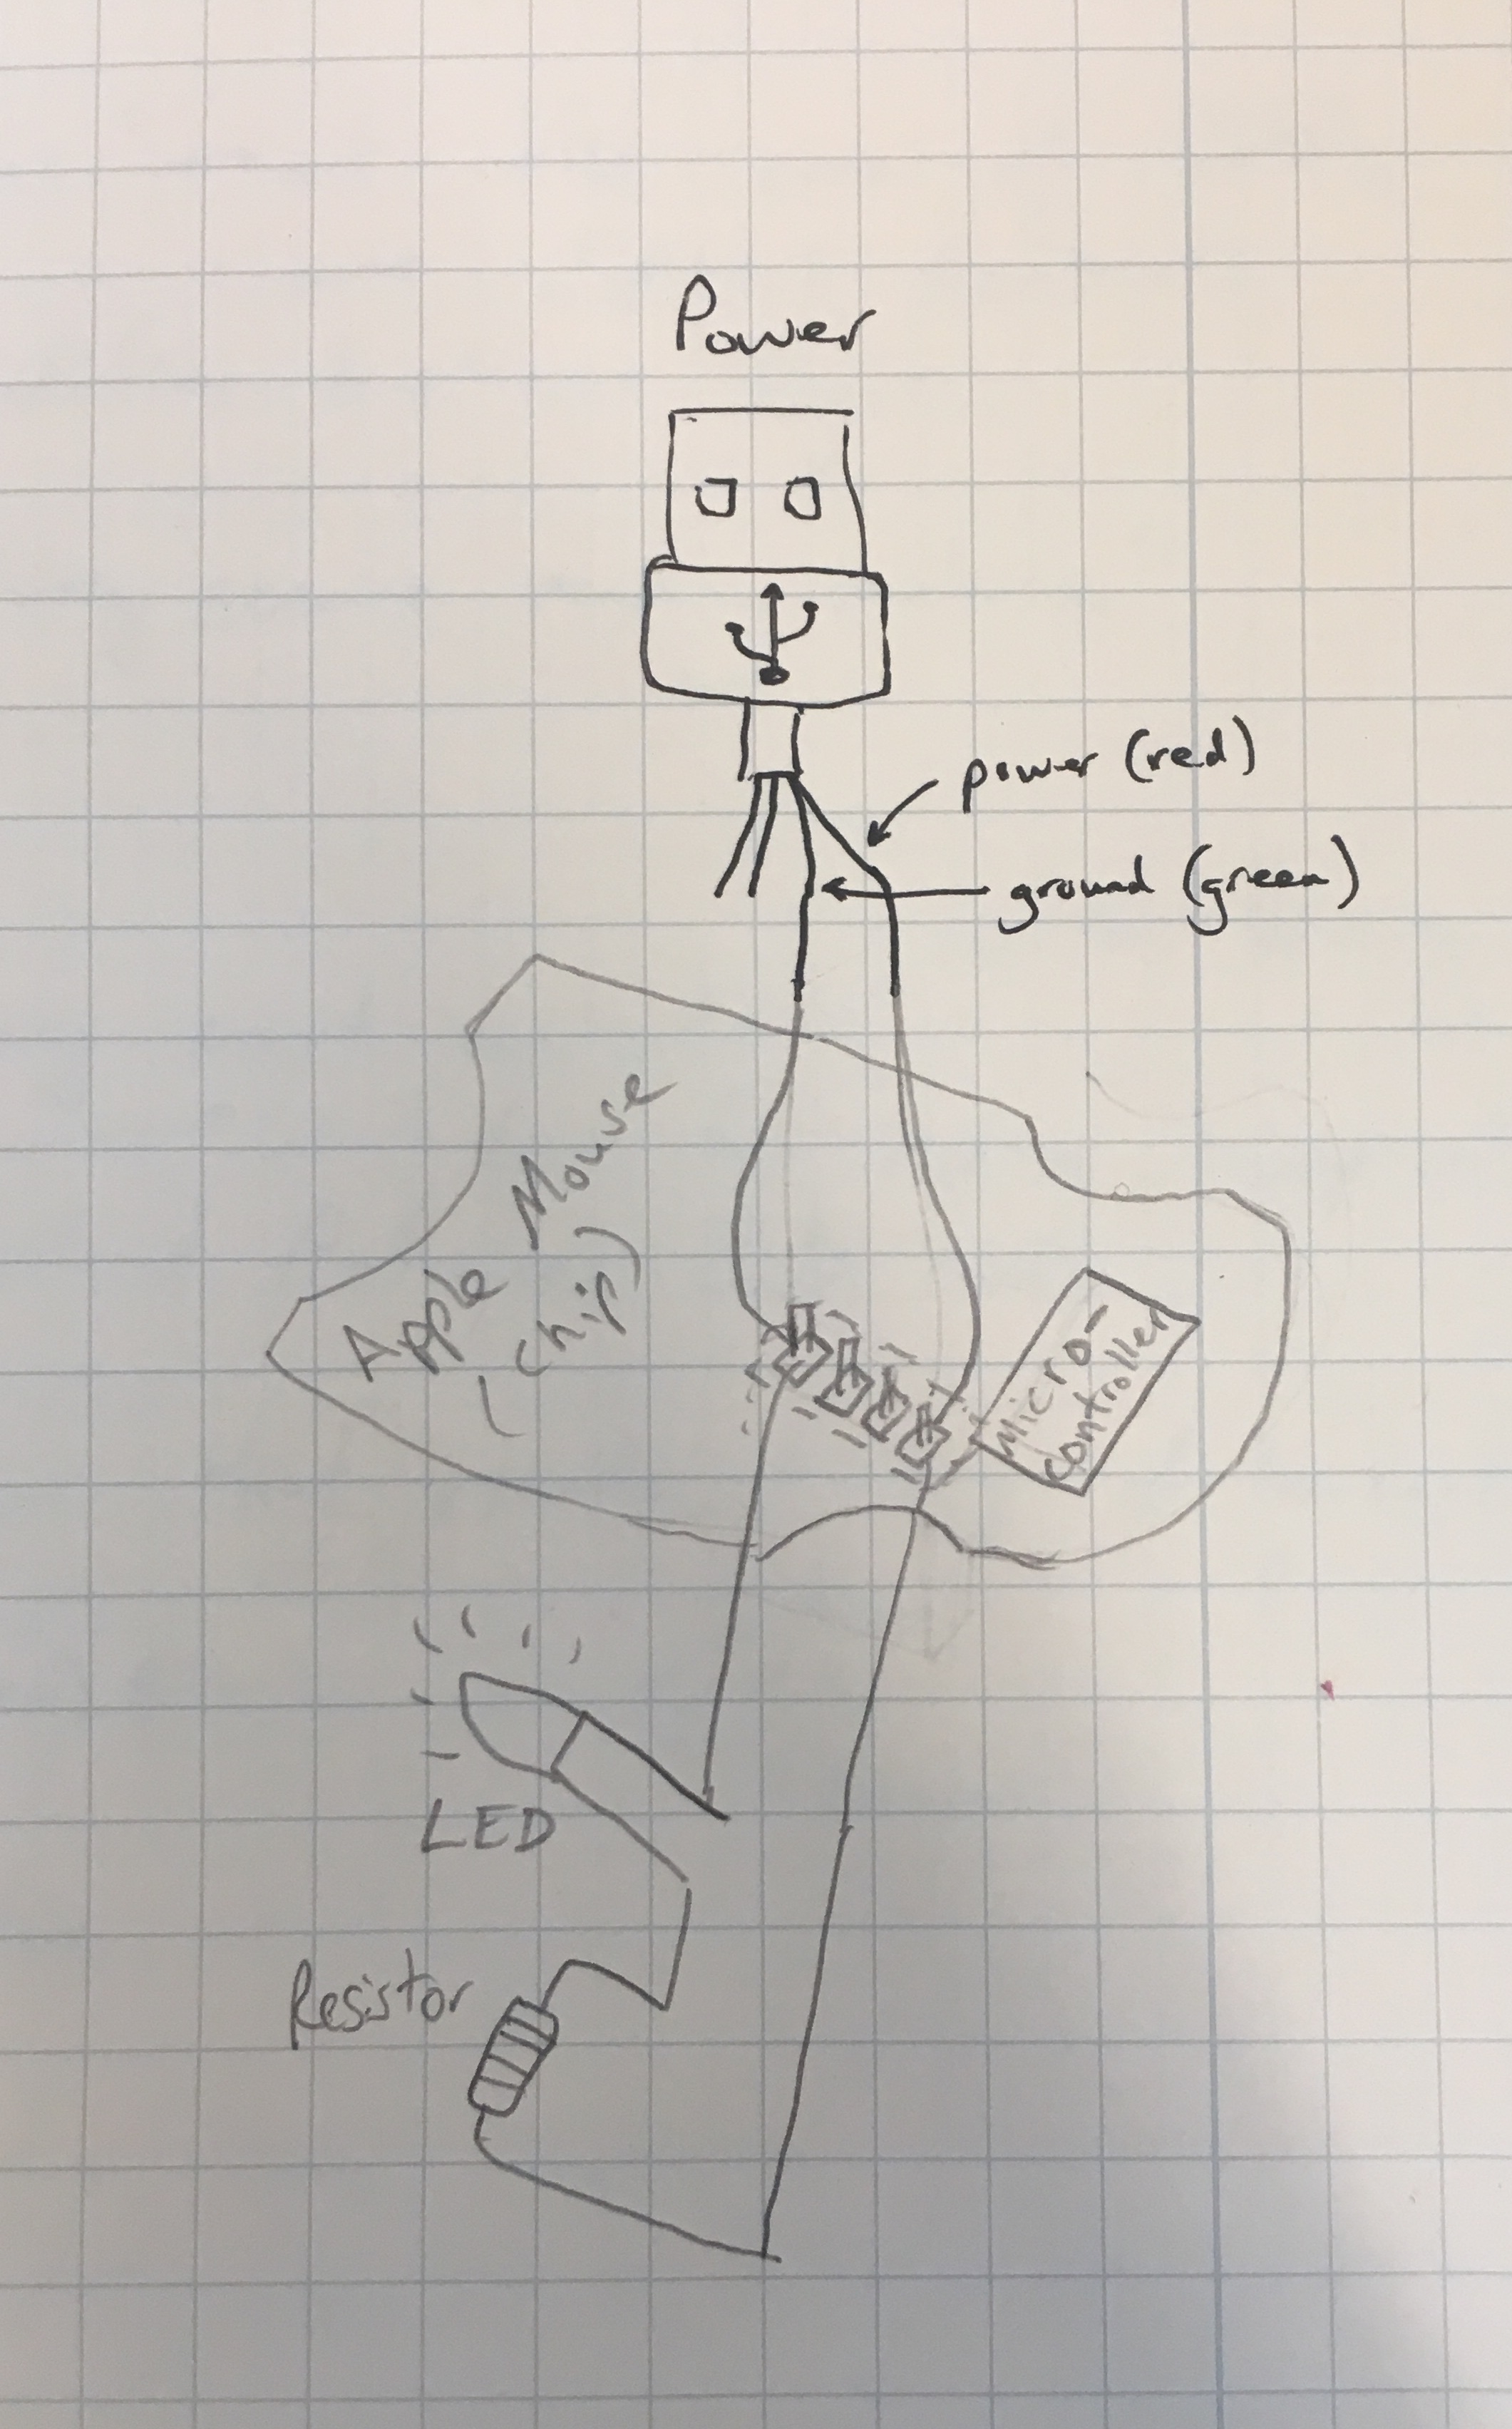 Power
power (red)
ground (green)
Apple Mouse
(chip)
Micro-
controller
LED
Resistor